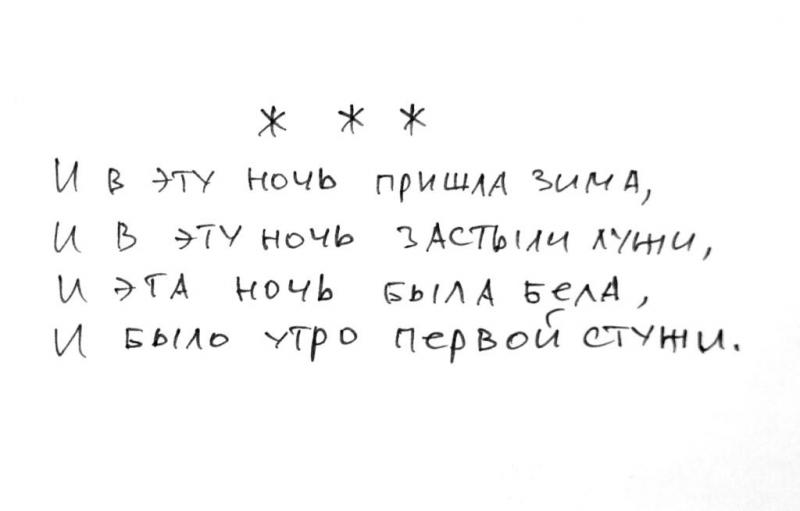 * * *
И в эту ночь пришла зима,
И в эту ночь застыли лужи,
И эта ночь была бела,
И было утро первой стужи.